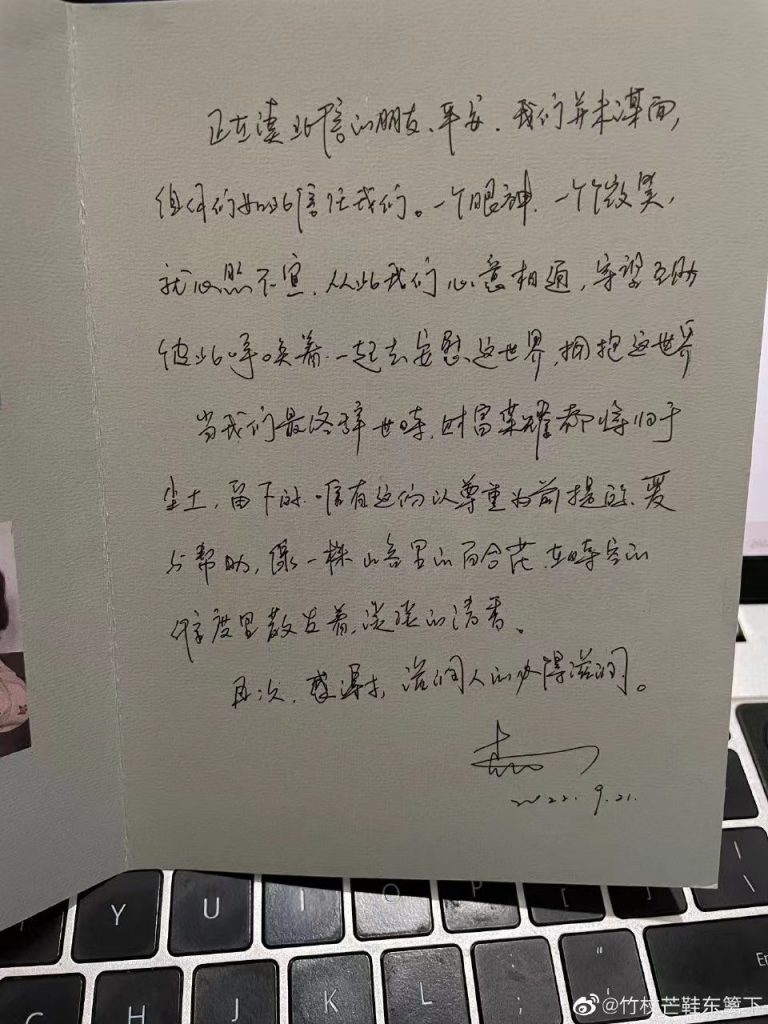 正在读此信的朋友、平安。我们并未谋面,
但你们如此信任我们。一个眼神、一个微笑,
就心照不宣,从此我们心意相通,守望互助
彼此呼唤着一起去安慰这世界,拥抱这世界
当我们最终辞世时,财富荣耀都将归于
尘土,留下的唯有这份以尊重为前提的、爱
与帮助,像一株山谷里的百合花、在时空的
维度里散发着、淡淡的清香。
再次,感谢,滋润人的必得滋润。
2022.9.21.
Y U I O P [ ] \
H J K L ; " '
En
@竹杖芒鞋东篱下